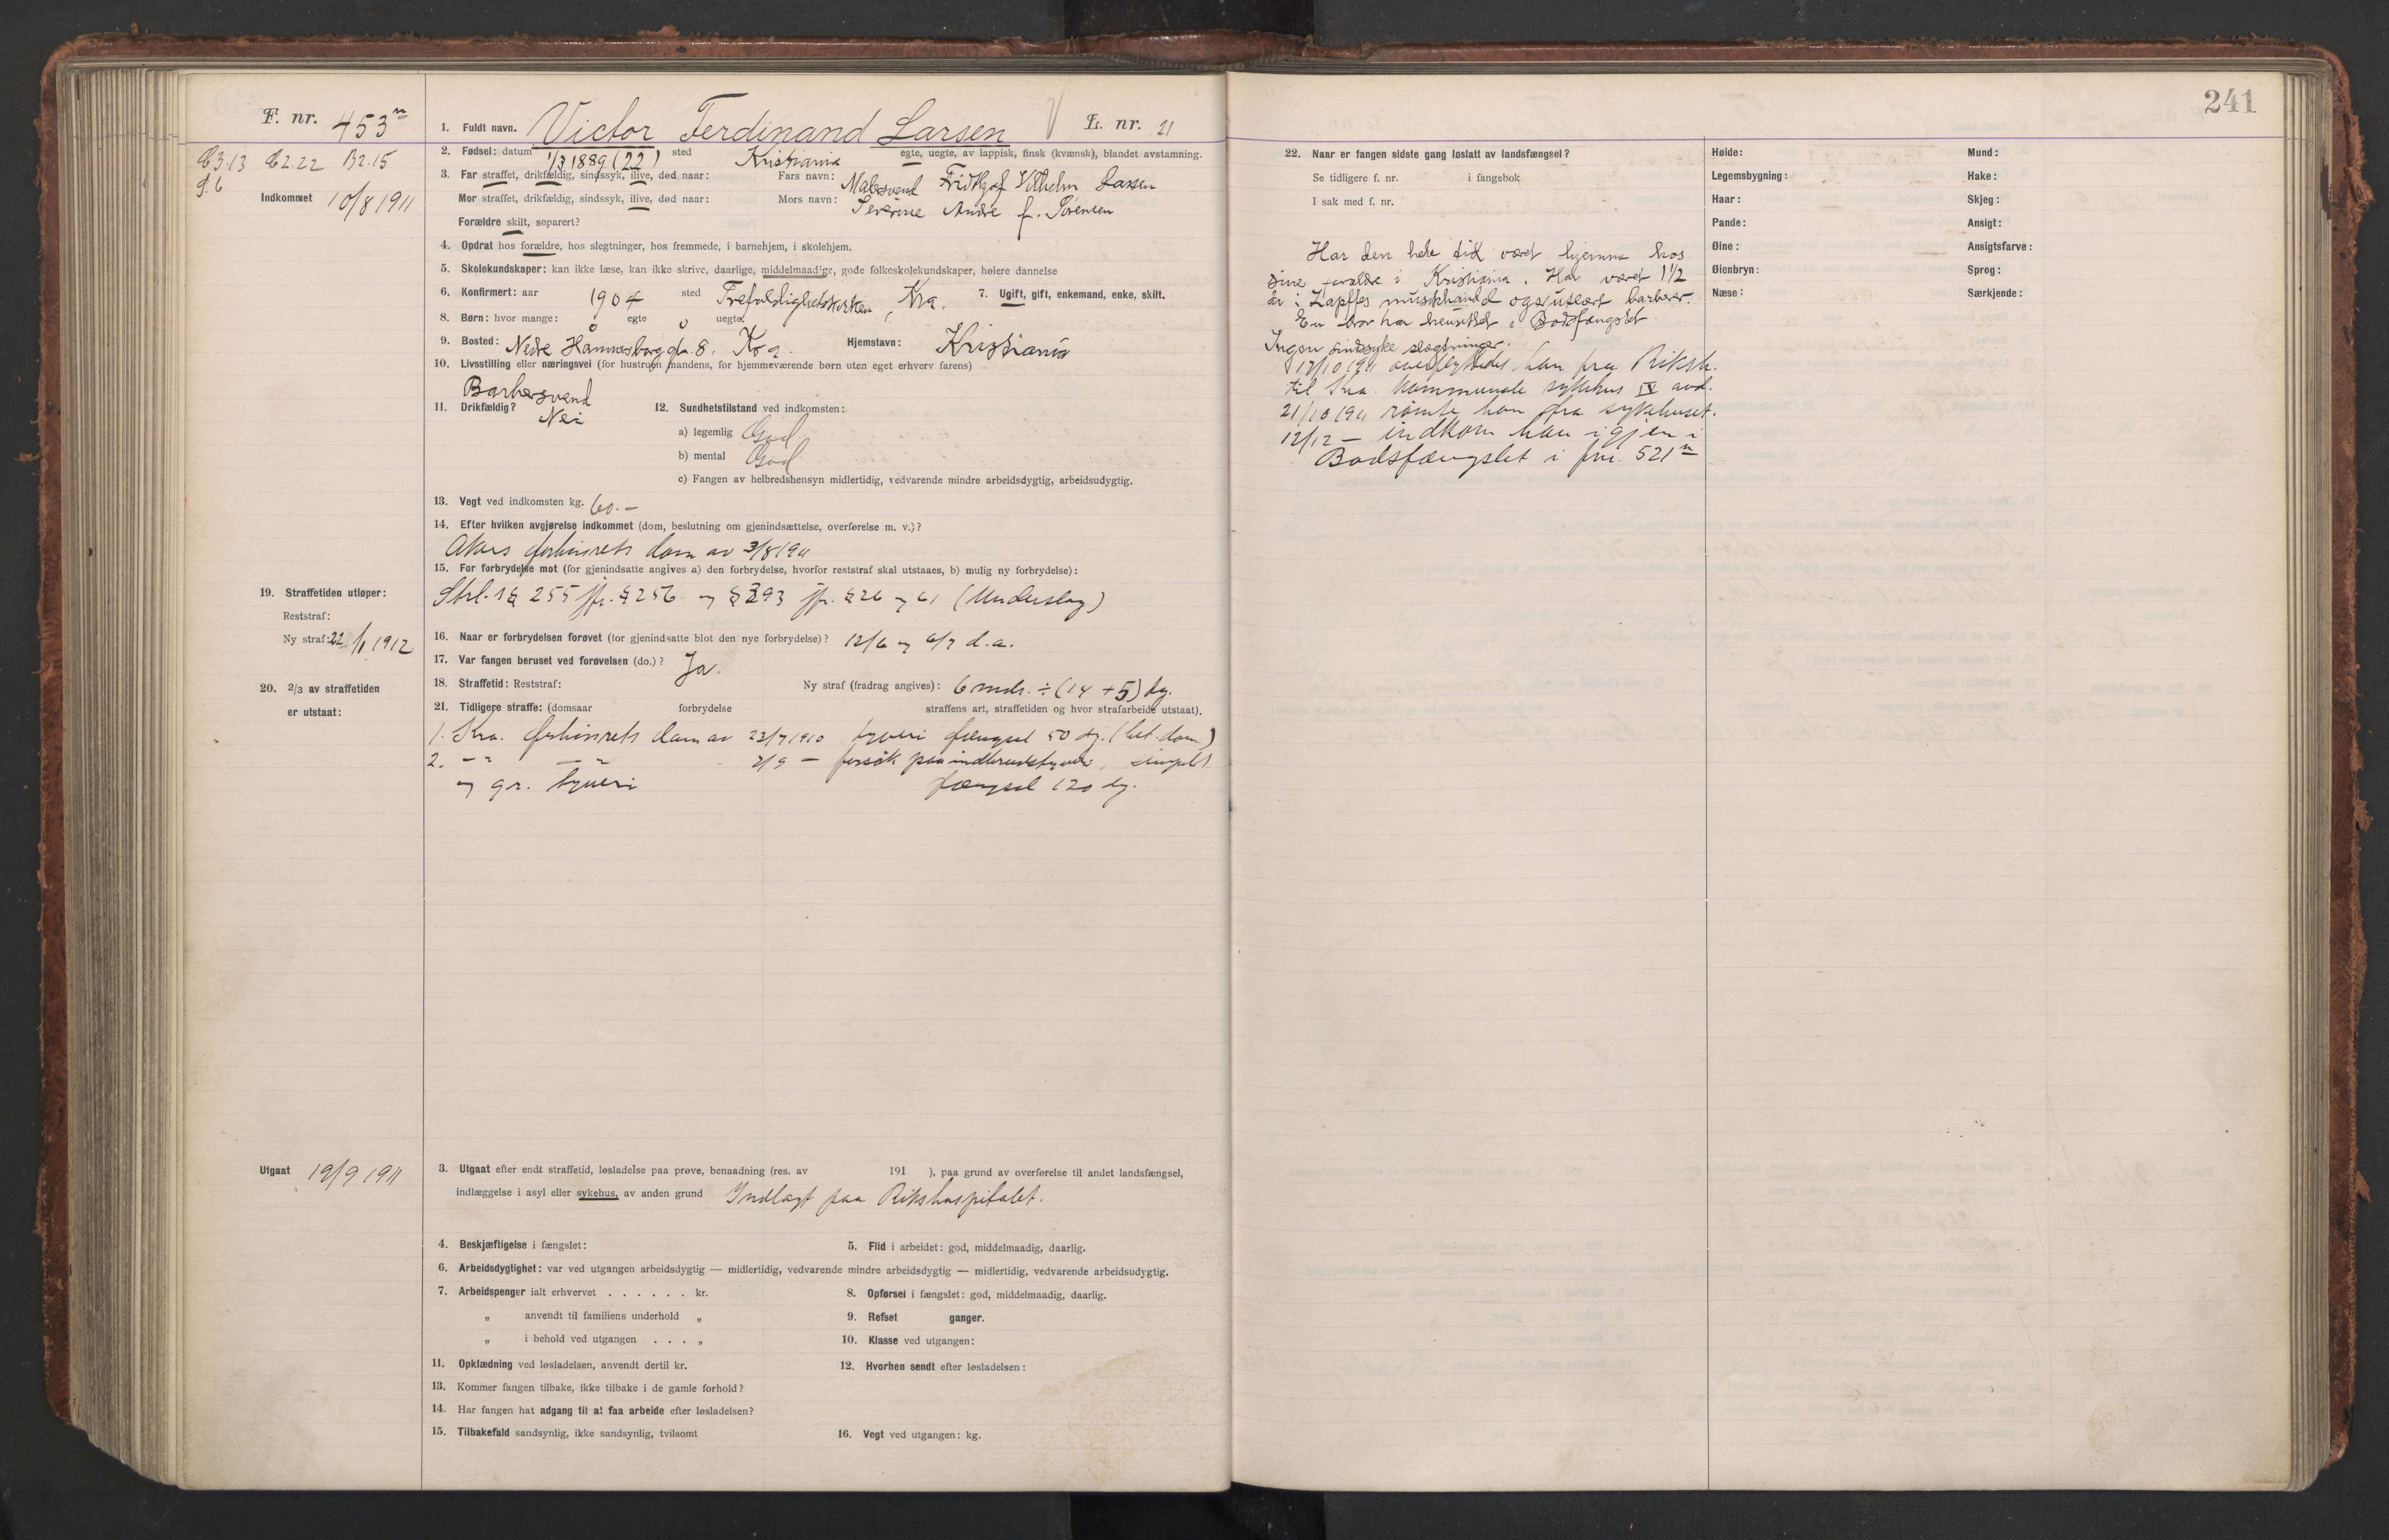 241
F. nr. 453
1. Fuldt navn. Victor Ferdinand Larsen L. nr. 21
C3.13 C2.22 B2.15
2. Fødsel: datum 1/3 1889 (22) sted Kristiania egte, uegte, av lappisk, finsk (kvænsk), blandet avstamning.
3. Far straffet, drikfældig, sindssyk, ilive, død naar: Fars navn: Malersvend Fridtjof Vilhelm Larsen
Indkommet 10/8 1911
Mor straffet, drikfældig, sindssyk, ilive, død naar: Mors navn: Severine Andre f. Sørensen
Forældre skilt, separert?
4. Opdrat hos forældre, hos slegtninger, hos fremmede, i barnehjem, i skolehjem.
5. Skolekundskaper: kan ikke læse, kan ikke skrive, daarlige, middelmaadige, gode folkeskolekundskaper, høiere dannelse
6. Konfirmert: aar 1904 sted Trefoldighetskirken, Kra. 7. Ugift, gift, enkemand, enke, skilt.
8. Børn: hvor mange: 0 egte 0 uegte.
9. Bosted: Nedre Hammersborg gt. 8. Kra. Hjemstavn: Kristiania
10. Livsstilling eller næringsvei (for hustruen mandens, for hjemmeværende børn uten eget erhverv farens)
Barbersvend
11. Drikfældig? Nei 12. Sundhetstilstand ved indkomsten:
a) legemlig God
b) mental God
c) Fangen av helbredshensyn midlertidig, vedvarende mindre arbeidsdygtig, arbeidsudygtig.
13. Vegt ved indkomsten kg. 60.-
14. Efter hvilken avgjørelse indkommet (dom, beslutning om gjenindsættelse, overførelse m. v.)?
Akers forhørsrets dom av 3/8 1911
15. For forbrydelse mot (for gjenindsatte angives a) den forbrydelse, hvorfor reststraf skal utstaaes, b) mulig ny forbrydelse):
Strl. §§ 255 jfr. § 256 og § 393 jfr. § 26 og 61 (Underslag)
19. Straffetiden utløper:
Reststraf:
Ny straf: 22/1 1912
16. Naar er forbrydelsen forøvet (for gjenindsatte blot den nye forbrydelse)? 12/6 og 6/7 d.a.
17. Var fangen beruset ved forøvelsen (do.)? Ja.
18. Straffetid: Reststraf: Ny straf (fradrag angives): 6 mdr. ÷ (14 + 5) dg.
20. 2/3 av straffetiden
er utstaat:
21. Tidligere straffe: (domsaar forbrydelse straffens art, straffetiden og hvor strafarbeide utstaat).
1. Kra. forhørsrets dom av 23/7 1910 tyveri fængsel 50 dg. (bet. dom)
2. -"- -"- 2/9 - forsøk paa indbrudstyveri, simpelt
og gr. tyveri fængsel 120 dg.
Utgaat 19/9 1911
3. Utgaat efter endt straffetid, løsladelse paa prøve, benaadning (res. av 191 ), paa grund av overførelse til andet landsfængsel,
indlæggelse i asyl eller sykehus, av anden grund Indlagt paa Rikshospitalet.
4. Beskjæftigelse i fængslet: 5. Flid i arbeidet: god, middelmaadig, daarlig.
6. Arbeidsdygtighet: var ved utgangen arbeidsdygtig — midlertidig, vedvarende mindre arbeidsdygtig — midlertidig, vedvarende arbeidsudygtig.
7. Arbeidspenger ialt erhvervet . . . . . . kr. 8. Opførsel i fængslet: god, middelmaadig, daarlig.
„ anvendt til familiens underhold „ 9. Refset ganger.
„ i behold ved utgangen . . . „ 10. Klasse ved utgangen:
11. Opklædning ved løsladelsen, anvendt dertil kr. 12. Hvorhen sendt efter løsladelsen:
13. Kommer fangen tilbake, ikke tilbake i de gamle forhold?
14. Har fangen hat adgang til at faa arbeide efter løsladelsen?
15. Tilbakefald sandsynlig, ikke sandsynlig, tvilsomt 16. Vegt ved utgangen: kg.
22. Naar er fangen sidste gang løslatt av landsfængsel?
Se tidligere f. nr. i fangebok
I sak med f. nr.
Har den hele tid været hjemme hos
sine forældre i Kristiania. Har været 1 1/2
år i Zapffes musikhandel også utlært barberer.
En bror har hensittet i Bodsfængslet.
Ingen sindssyke slægtninger.
12/10 1911 overflyttedes han fra Riksh.
til Kra. kommunale sykehus IV avd.
21/10 1911 rømte han fra sykehuset.
12/12 — indkom han igjen i
Bodsfængslet i fnr. 521
Høide: Mund:
Legemsbygning: Hake:
Haar: Skjeg:
Pande: Ansigt:
Øine: Ansigtsfarve:
Øienbryn: Sprog:
Næse: Særkjende: